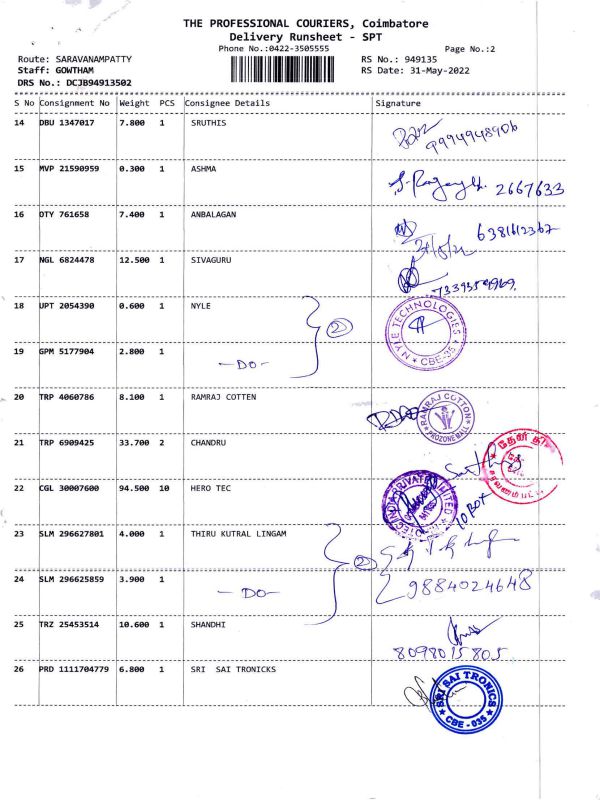 THE PROFESSIONAL COURIERS, Coimbatore
Delivery Runsheet - SPT
Phone No.:0422-3505555
Page No.:2
Route: SARAVANAMPATTY
RS No.: 949135
Staff: GOWTHAM
RS Date: 31-May-2022
DRS No.: DCJB94913502
S No Consignment No Weight PCS Consignee Details Signature
14 DBU 1347017 7.800 1 SRUTHIS
9994948906
15 MVP 21590959 0.300 1 ASHMA
2667633
16 DTY 761658 7.400 1 ANBALAGAN
6381612367
31/5/22
17 NGL 6824478 12.500 1 SIVAGURU
18 UPT 2054390 0.600 1 NYLE
2
NYLE TECHNOLOGIES
* CBE-35 *
19 GPM 5177904 2.800 1
-DO-
20 TRP 4060786 8.100 1 RAMRAJ COTTEN
RAMRAJ COTTON
* PROZONE MALL *
21 TRP 6909425 33.700 2 CHANDRU
22 CGL 30007600 94.500 10 HERO TEC
PRIVATE LIMITED
10 BOX
23 SLM 296627801 4.000 1 THIRU KUTRAL LINGAM
2
24 SLM 296625859 3.900 1
-DO-
9884024648
25 TRZ 25453514 10.600 1 SHANDHI
8098015805
26 PRD 1111704779 6.800 1 SRI SAI TRONICKS
SRI SAI TRONICS
* CBE - 035 *